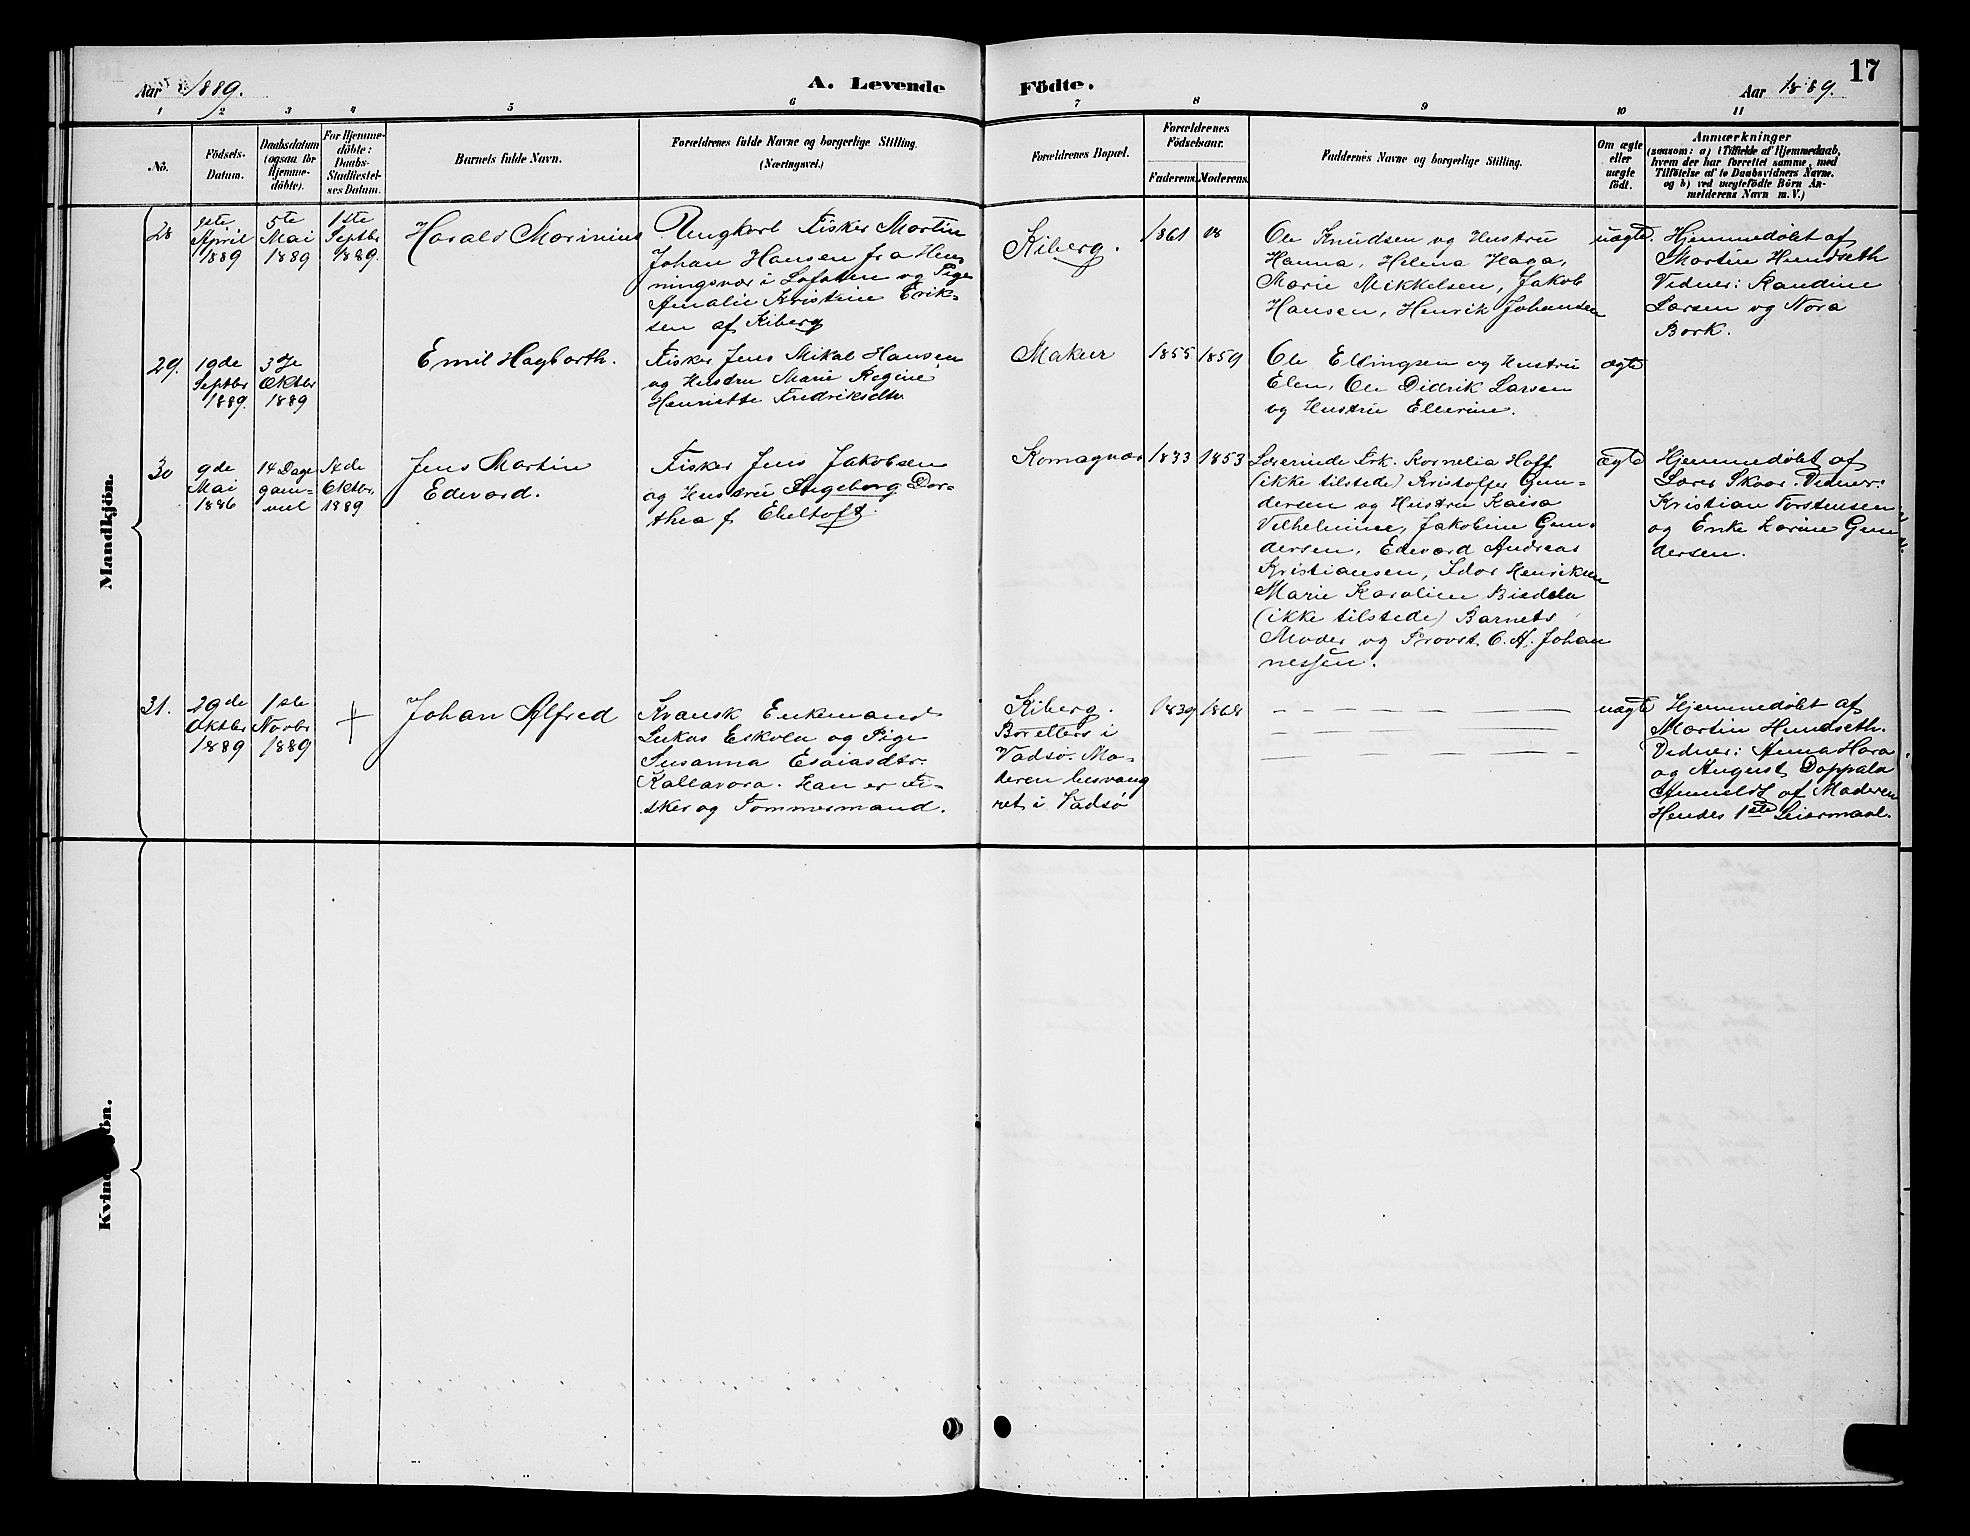 Aar 1889.
A. Levende
Födte.
17
Aar 1889.
1 2 3 4 5 6 7 8 9 10 11
No.
Födsels-
Datum.
Daabsdatum
(ogsaa for
Hjemme-
döbte).
For Hjemme-
döbte:
Daabs-
Stadfæstel-
ses Datum.
Barnets fulde Navn.
Forældrenes fulde Navne og borgerlige Stilling.
(Næringsvei.)
Forældrenes Bopæl.
Forældrenes
Födselsaar.
Faderens.
Moderens.
Faddernes Navne og borgerlige Stilling.
Om ægte
eller
uægte
födt.
Anmærkninger
(saasom: a) i Tilfælde af Hjemmedaab,
hvem der har forrettet samme, med
Tilföielse af to Daabsvidners Navne.
og b) ved uægtefödte Börn An-
melderens Navn m. V.)
Mandkjön.
28
April
1889
5te
Mai
1889
1ste
Septbr
1889.
Harald Marinius
Ungkarl Fisker Martin
Johan Hansen fra Hen-
ningsvær i Lofoten og Pige
Amalie Kristine Erik-
sen af Kiberg
Kiberg.
1861
68
Ole Knudsen og Hustru
Hanna, Helena Haga,
Marie Mikkelsen, Jakob
Hansen, Henrik Johansen
uægte.
Hjemmedøbt af
Martin Hundseth
Vidner: Randine
Larsen og Nora
Bork.
29.
19de
Septbr
1889.
3je
Oktbr
1889
Emil Hagbarth.
Fisker Jens Mikal Hansen
og Hustru Marie Regine
Henriette Fredriksdtr
Makur
1855
1859
Ole Ellingsen og Hustru
Elen, Ole Didrik Larsen
og Hustru Ellerine.
ægte
30
9de
Mai
1886
14 Dage
gam-
mel
Oktbr.
1889
Jens Martin
Edevard.
Fisker Jens Jakobsen
og Hustru Ingeborg Dor-
thea f. Ebeltoft.
Komagvær
1833
1853
Lærerinde Frk. Kornelia Hoff
(ikke tilstede) Kristoffer Gun-
dersen og Hustru Kaisa
Vilhelmine, Jakobine Gun-
dersen, Edevard Andreas
Kristiansen, Idor Henriksen
Marie Karoline
(ikke tilstede) Barnets
Moder og Provst C. A. Johan
nessen.
ægte
Hjemmedøbt af
Lærer Skaar. Vidner:
Kristian Torstensen
og Enke Karine Gun
dersen.
31.
29de
Oktbr
1889
1ste
Novbr
1889
+
Johan Alfred
Kvænsk Enkemand
Lukas Eskola og Pige
Susanna Esaiasdtr.
Kallavara. Han er Fi-
sker og Tømmermand.
Kiberg.
Borettens i
Vadsø. Mo-
deren besvang
ret i Vadsø
1839
1868
uægte
Hjemmedøbt af
Martin Hundseth.
Vidner: Anna Hara
og August Doppala
Anmeldt af Moderen
Hendes 1ste Leiermaal.